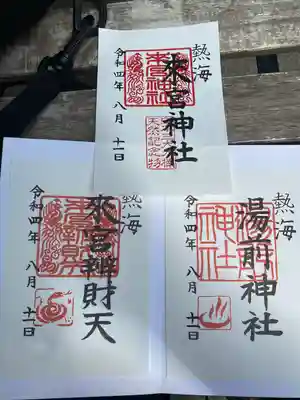 熱海
來宮神社
天然記念物
令和四年 八月 十一日
熱海
來宮辨財天
令和四年 八月 十一日
熱海
湯前神社
神社
令和四年 八月 十一日